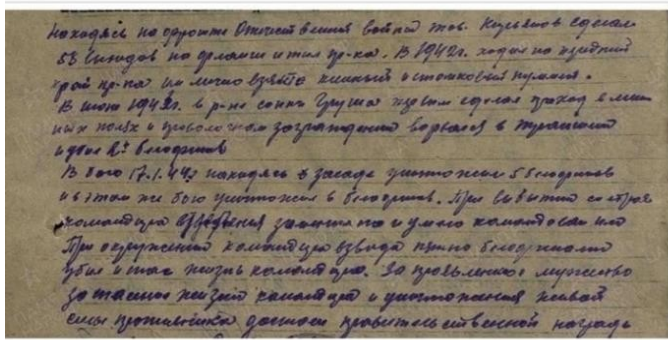 Находясь на фронте Отечественной войны тов. Кузьянов сделал
58 выходов на фланги и тыл пр-ка. В 1942г. ходил на передний
край пр-ка им лично взяты пленный и станковый пулемет.
В июне 1942г. в р-не сопки Груша первым сделал проход в мин
ных полях и проволочном заграждении ворвался в траншею
и убил 2х белофинов
В бою 17.1.44г находясь в засаде уничтожил 5 белофинов
и в этом же бою уничтожил 8 белофинов. При выбытии со строя
командира отделения заменил его и умело командовал им
При окружении командира взвода белофинами
убил и спас жизнь командира. За проявленное мужество
спасение жизни командира и уничтожения живой
силы противника достоин правительственной награды